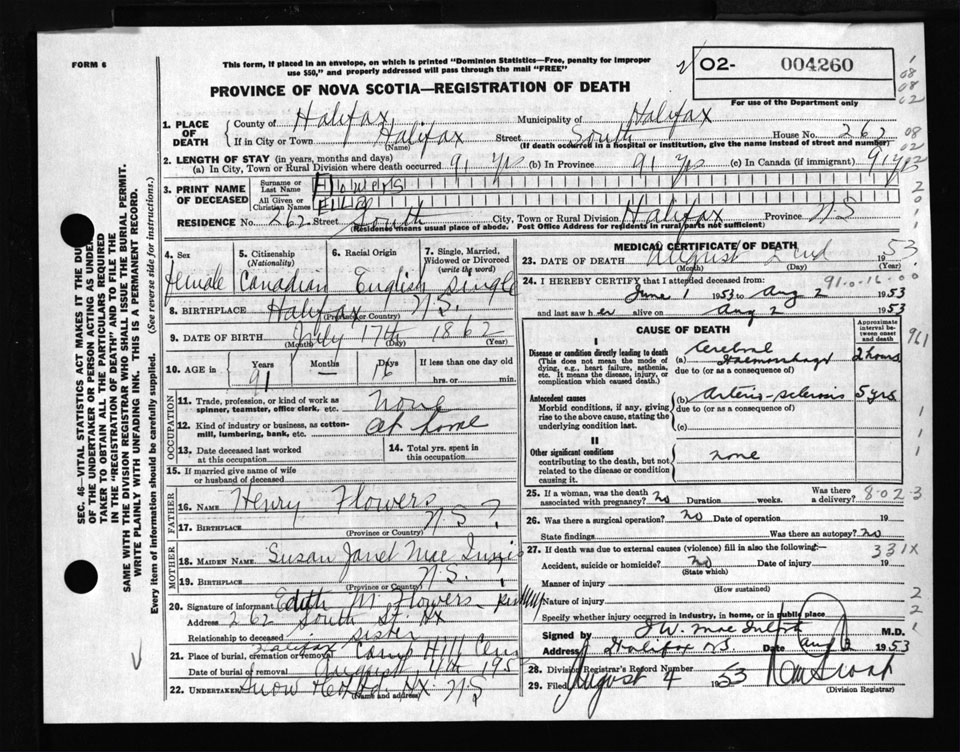 FORM 6
This form, if placed in an envelope, on which is printed "Dominion Statistics—Free, penalty for improper
use $50," and properly addressed will pass through the mail "FREE"
PROVINCE OF NOVA SCOTIA—REGISTRATION OF DEATH
02- 004260
For use of the Department only
08
08
02
1. PLACE OF DEATH
County of Halifax Municipality of Halifax
If in City or Town Halifax Street South House No. 262
(Name) (If death occurred in a hospital or institution, give the name instead of street and number)
08
02
2. LENGTH OF STAY (in years, months and days)
(a) In City, Town or Rural Division where death occurred 91 yrs (b) In Province 91 yrs (c) In Canada (if immigrant) 91 yrs
3. PRINT NAME OF DECEASED
Surname or Last Name Flowers
All Given or Christian Names
RESIDENCE No. 262 Street South City, Town or Rural Division Halifax Province NS
(Residence means usual place of abode. Post Office Address for residents in rural parts not sufficient)
4. Sex
female
5. Citizenship
(Nationality)
Canadian
6. Racial Origin
English
7. Single, Married,
Widowed or Divorced
(write the word)
single
8. BIRTHPLACE Halifax N.S.
(Province or Country)
9. DATE OF BIRTH July 17th 1862
(Month) (Day) (Year)
10. AGE in
Years Months Days If less than one day old
91 — 16 hrs. or min.
OCCUPATION
11. Trade, profession, or kind of work as
spinner, teamster, office clerk, etc. None
12. Kind of industry or business, as cotton-
mill, lumbering, bank, etc. at home
13. Date deceased last worked
at this occupation
14. Total yrs. spent in
this occupation
15. If married give name of wife
or husband of deceased
FATHER
16. NAME Henry Flowers
17. BIRTHPLACE N.S.?
(Province or Country)
MOTHER
18. MAIDEN NAME Susan Janet Mac Innis
19. BIRTHPLACE N.S. ?
(Province or Country)
20. Signature of informant Edith M. Flowers
Address 262 South St. Hx
Relationship to deceased sister
21. Place of burial, cremation or removal Halifax Camp Hill Cem
Date of burial or removal August 4th 195
22. UNDERTAKER Snow Hx NS
(Name and address)
MEDICAL CERTIFICATE OF DEATH
23. DATE OF DEATH August 2nd 1953
(Month) (Day) (Year)
24. I HEREBY CERTIFY that I attended deceased from: 91-0-16
June 1 1953 to Aug 2 1953
and last saw her alive on Aug 2 1953
CAUSE OF DEATH
Approximate interval between onset and death
I
Disease or condition directly leading to death
(This does not mean the mode of
dying, e.g., heart failure, asthenia,
etc. It means the disease, injury, or
complication which caused death.)
(a) Cerebral Haemorrhage 2 hours
due to (or as a consequence of)
Antecedent causes
Morbid conditions, if any, giving
rise to the above cause, stating the
underlying condition last.
(b) Arterio-sclerosis 5 yrs
due to (or as a consequence of)
(c)
II
Other significant conditions
contributing to the death, but not
related to the disease or condition
causing it.
none
25. If a woman, was the death
associated with pregnancy? no Duration weeks. Was there a delivery? 8023
26. Was there a surgical operation? no Date of operation 19
State findings Was there an autopsy? no
27. If death was due to external causes (violence) fill in also the following:— 331X
Accident, suicide or homicide? no Date of injury 19
(State which)
Manner of injury
(How sustained)
Nature of injury
Specify whether injury occurred in industry, in home, or in public place
Signed by M.D.
Address Halifax NS Date Aug 1953
28. Division Registrar's Record Number
29. Filed August 4 1953
(Division Registrar)
SEC. 46—VITAL STATISTICS ACT MAKES IT THE DU
OF THE UNDERTAKER OR PERSON ACTING AS UNDER
TAKER TO OBTAIN ALL THE PARTICULARS REQUIRED
IN THE "REGISTRATION OF DEATH" AND TO FILE THE
SAME WITH THE DIVISION REGISTRAR WHO SHALL ISSUE THE BURIAL PERMIT.
WRITE PLAINLY WITH UNFADING INK. THIS IS A PERMANENT RECORD.
Every item of information should be carefully supplied. (See reverse side for instructions.)